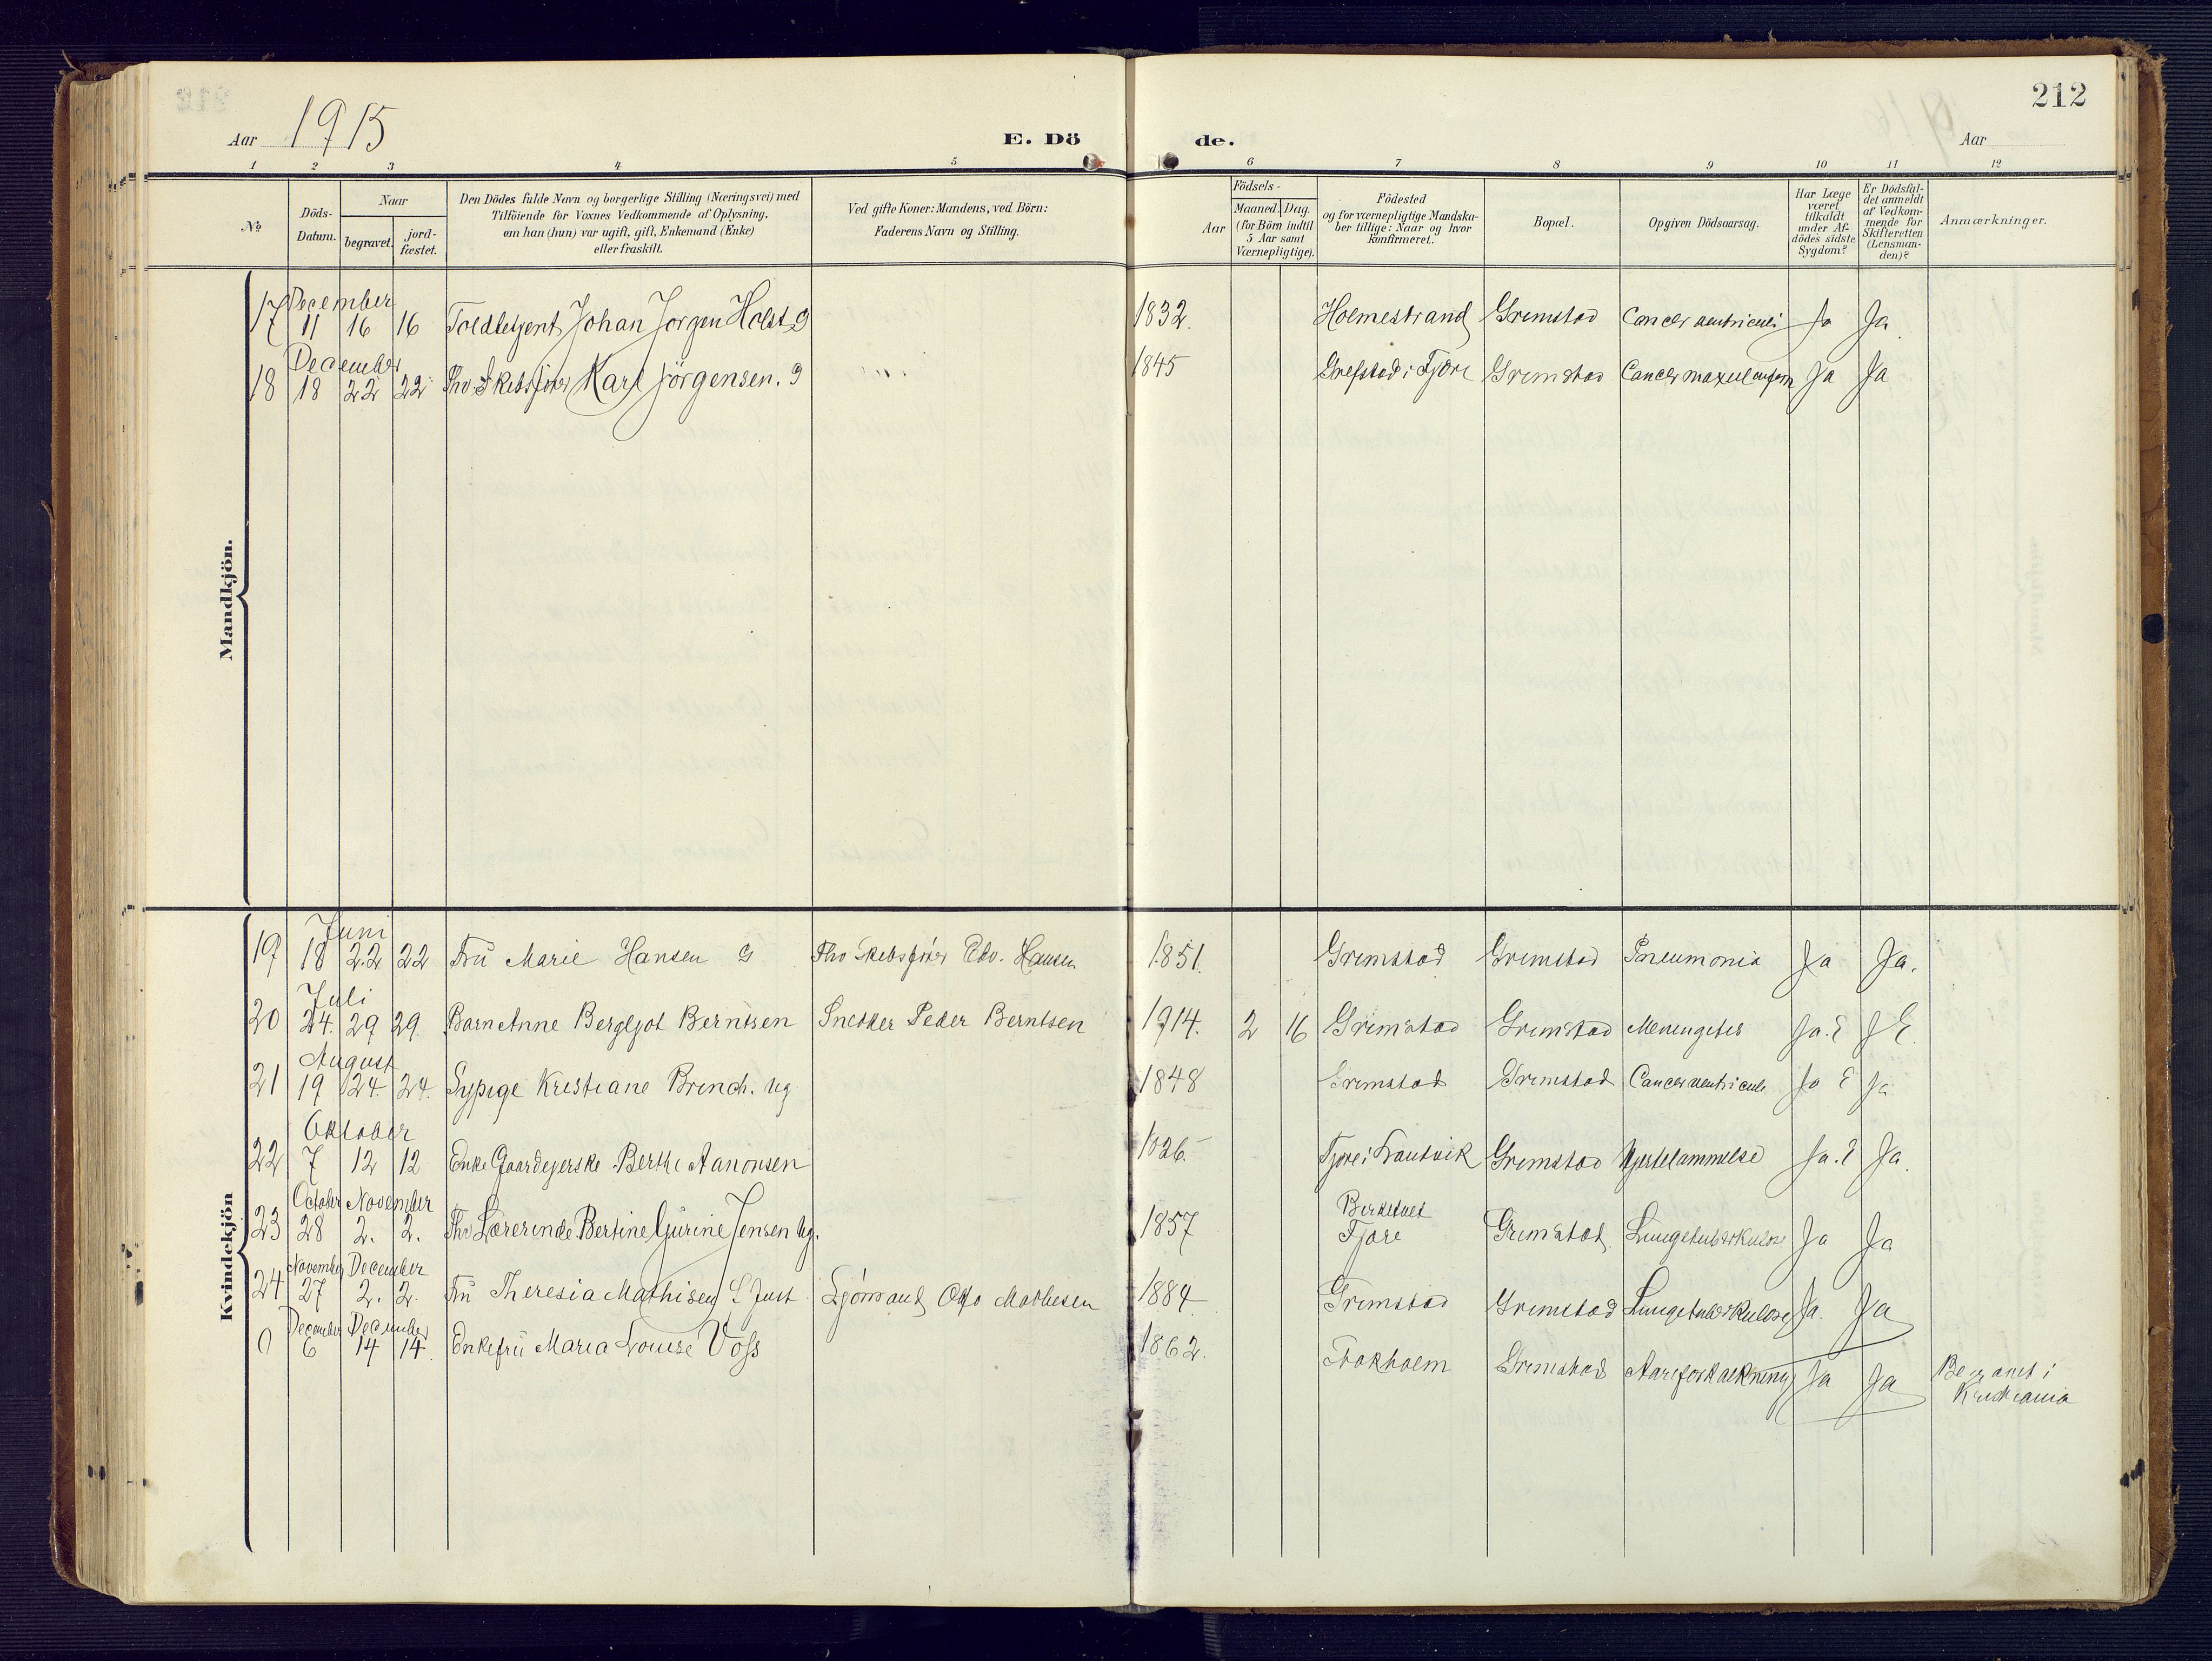 212
Aar 1915
E. Dö de.
Aar
1 2 3 4 5 6 7 8 9 10 11 12
No
Döds-Datum.
Naar
begravet.
jord-fæstet.
Den Dödes fulde Navn og borgerlige Stilling (Næringsvei) med
Tilföiende for Voxnes Vedkommende af Oplysning,
om han (hun) var ugift, gift, Enkemand (Enke)
eller fraskilt.
Ved gifte Koner: Mandens, ved Börn:
Faderens Navn og Stilling.
Aar
Födsels-
Maaned. Dag.
(for Börn indtil
5 Aar samt
Værnepligtige).
Födested
og for værnepligtige Mandska-
ber tillige: Naar og hvor
konfirmeret.
Bopæl.
Opgiven Dödsaarsag.
Har Læge
været
tilkaldt
under Af-
dödes sidste
Sygdom?
Er Dödsfal-
det anmeldt
af Vedkom-
mende for
Skifteretten
(Lensman-
den)?
Anmærkninger.
Mandkjön.
December
17 11 16 16 Toldbetjent Johan Jorgen Holst g 1832. Holmestrand Grimstad Cancer ventriculi Ja Ja
December
18 18 22 22 Fhv Skibsfører Karl Jörgensen. g 1845 Grefstad i Fjøre Grimstad Cancer Ja Ja
Kvindekjön
Juni
19 18 22 22 Fru Marie Hansen G Fhv Skibsfører Edv. Hansen 1851. Grimstad Grimstad Pneumonia Ja Ja.
Juli
20 24. 29 29. Barn Anne Bergljot Berntsen Snedker Peder Berntsen 1914. 2 16 Grimstad Grimstad Meningitis Ja. E J E.
August
21 19 24. 24. Sypige Kristiane Brinch. ug 1848 Grimstad Grimstad Cancer ventriculi Ja E Ja
Oktober
22 7 12 12 Enke Gaardejerske Berthe Aanonsen 1826. Fjøre i Grimstad Hjertelammelse Ja. E Ja.
October November
23 28 2. 2. Fhv Lærerinde Bertine Gurine Jensen Ug. 1857 Birketvet
Fjære Grimstad. Lungetuberkulose Ja Ja
November December
24 27 2. 2. Fru Theresia Mathisen Sjømand Otto Mathisen 1884 Grimstad Grimstad Lungetuberkulose Ja. Ja
December December
0 6 14 14. Enkefru Maria Louise Voss 1862. Stokholm Grimstad Aareforkalkning Ja Ja Begravet i
Kristiania